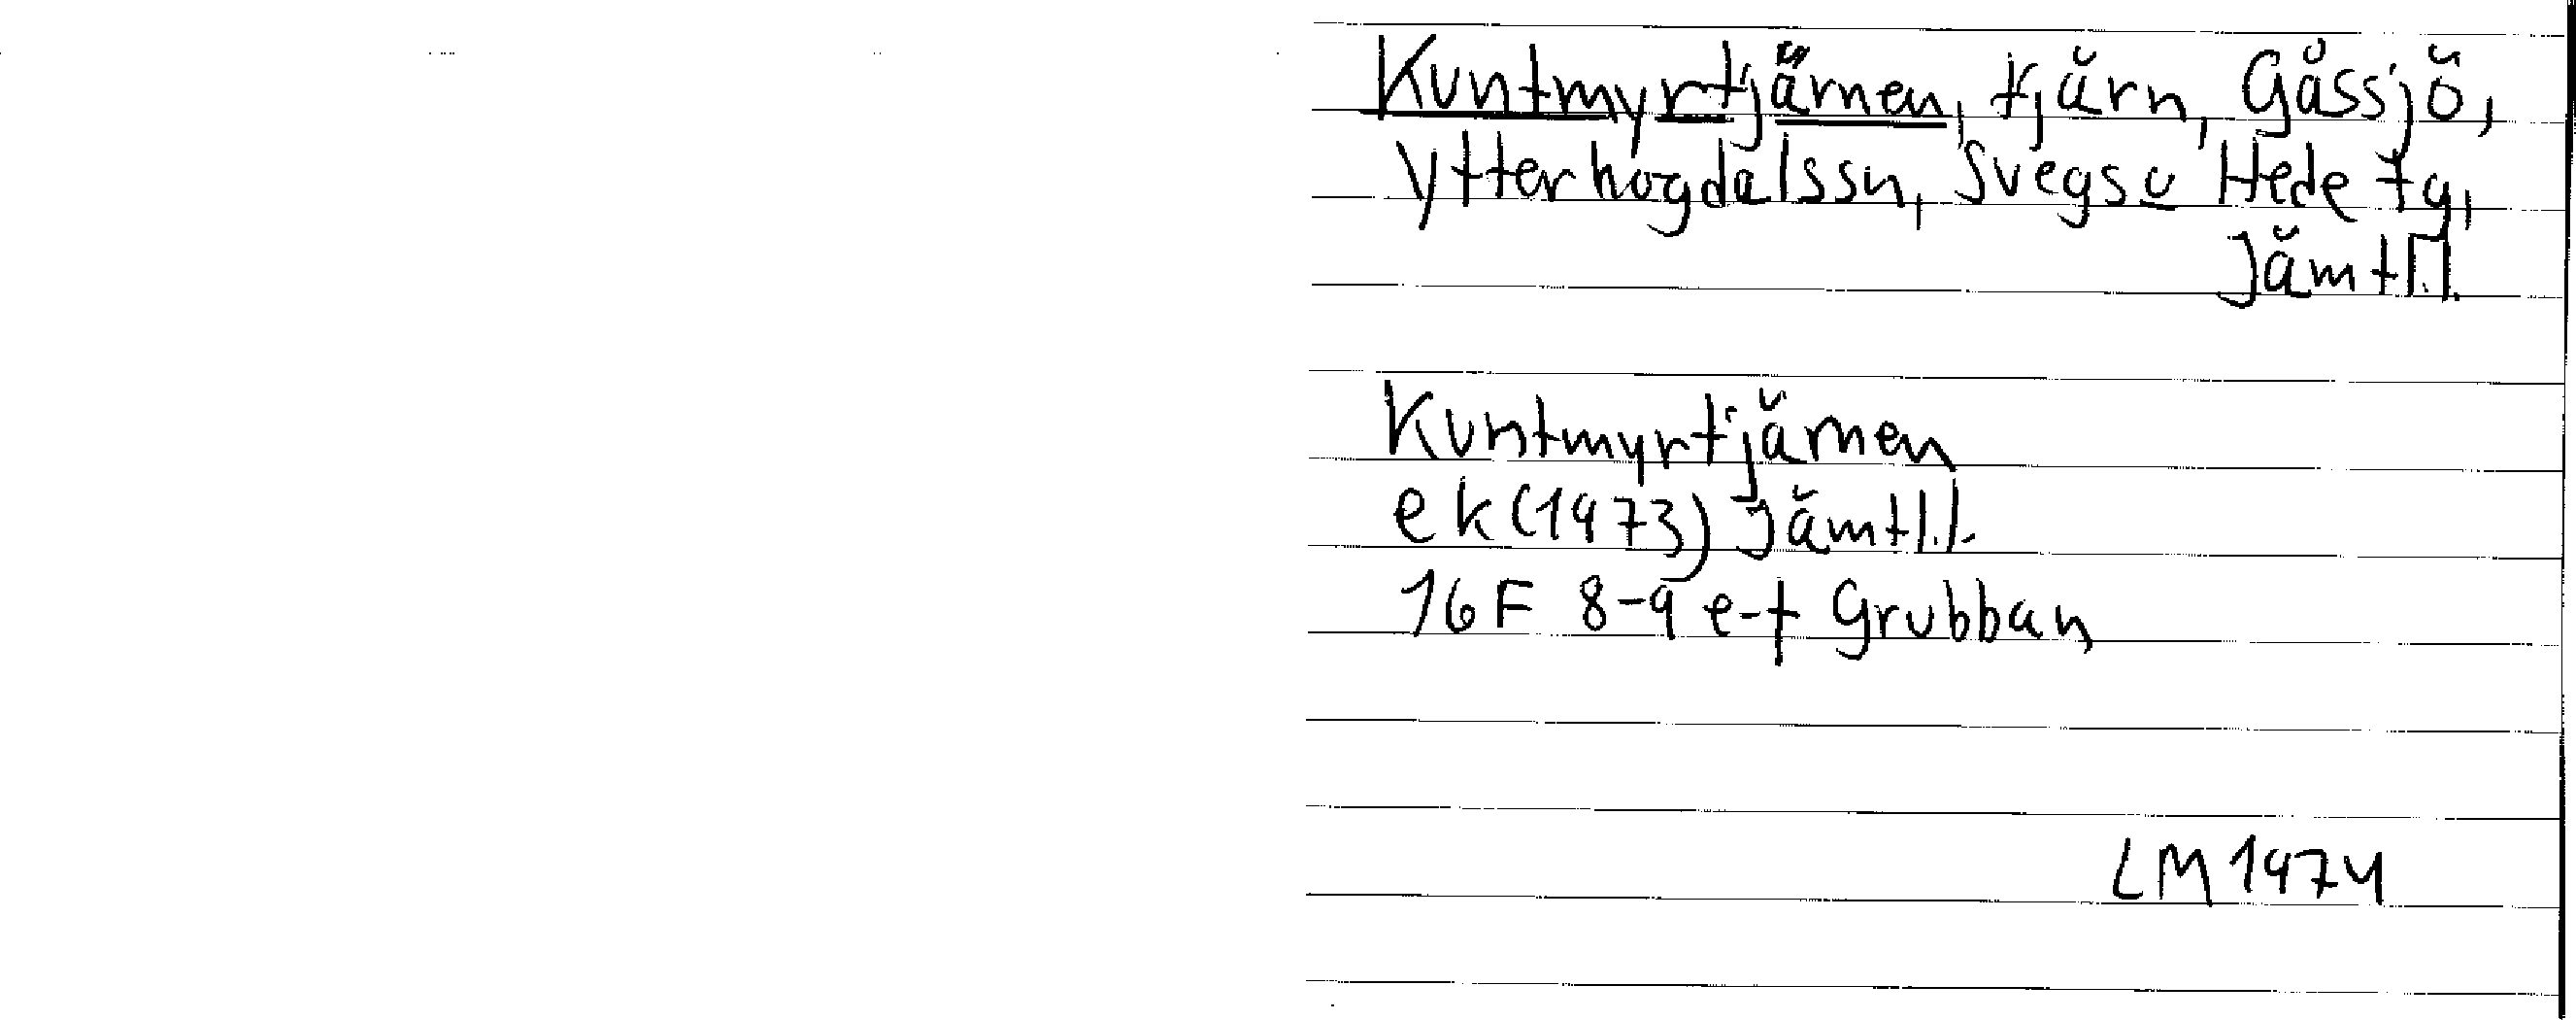 Kuntmyrtjärnen, tjärn, Gåssjö,
Ytterhogdalssn, Svegs o Hede tg,
Jämtl.l.
Kuntmyrtjärnen
ek (1973) Jämtl.l.
16F 8-9 e-f Grubban
LM 1974